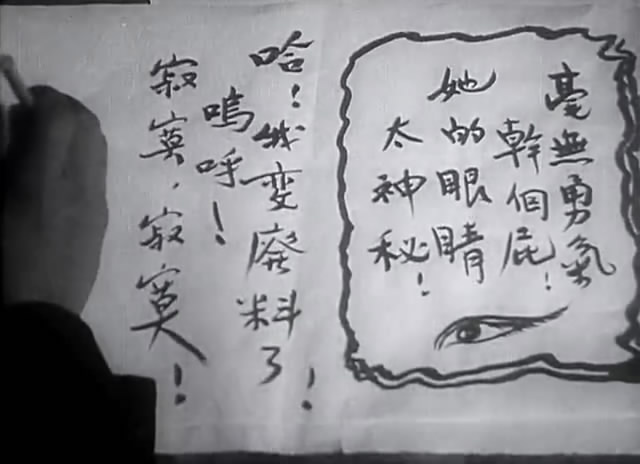 毫無勇氣
幹個屁!
她的眼睛
太神秘!
哈!我變廢料了!
嗚呼!
寂寞,寂寞!